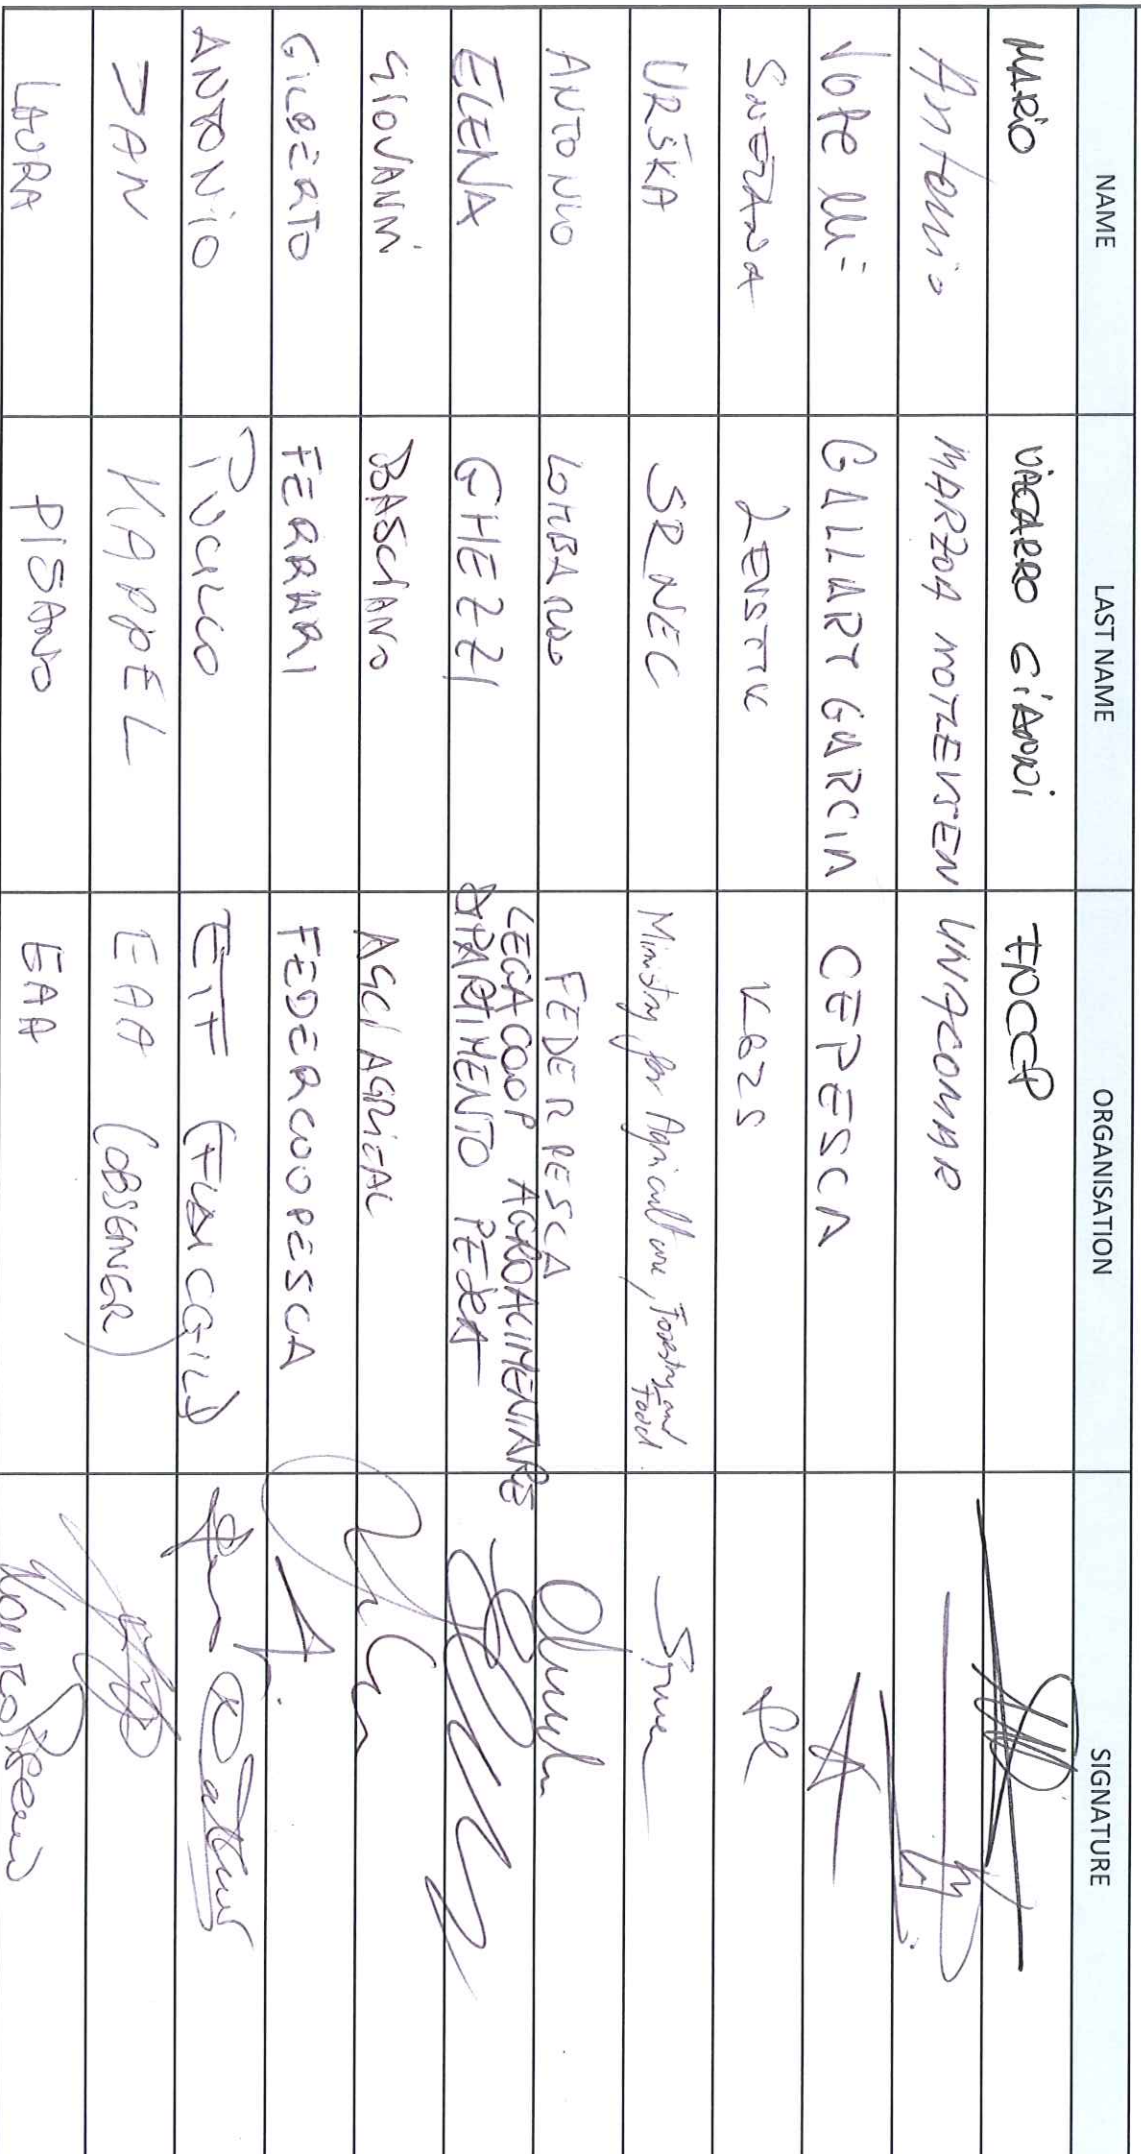 NAME LAST NAME ORGANISATION SIGNATURE
MARIO VACARRO GIANNI FNCCP
Antonio MARZOA NOTLEVSEN UNACOMAR
GALLART GARCIA CEPESCA
SNEŽANA LEVSTIK KGZS
URŠKA SRNEC Ministry for Agriculture, Forestry and Food
ANTONIO LOMBARDO FEDERPESCA
ELENA GHEZZI LEGACOOP AGROALIMENTARE
DIPARTIMENTO PESCA
GIOVANNI BASCIANO AGCI AGRITAL
GILBERTO FERRARI FEDERCOOPESCA
ANTONIO PUCILLO ETF (FLAI CGIL)
JAN KAPPEL EAA (OBSERVER)
LAURA PISANO EAA